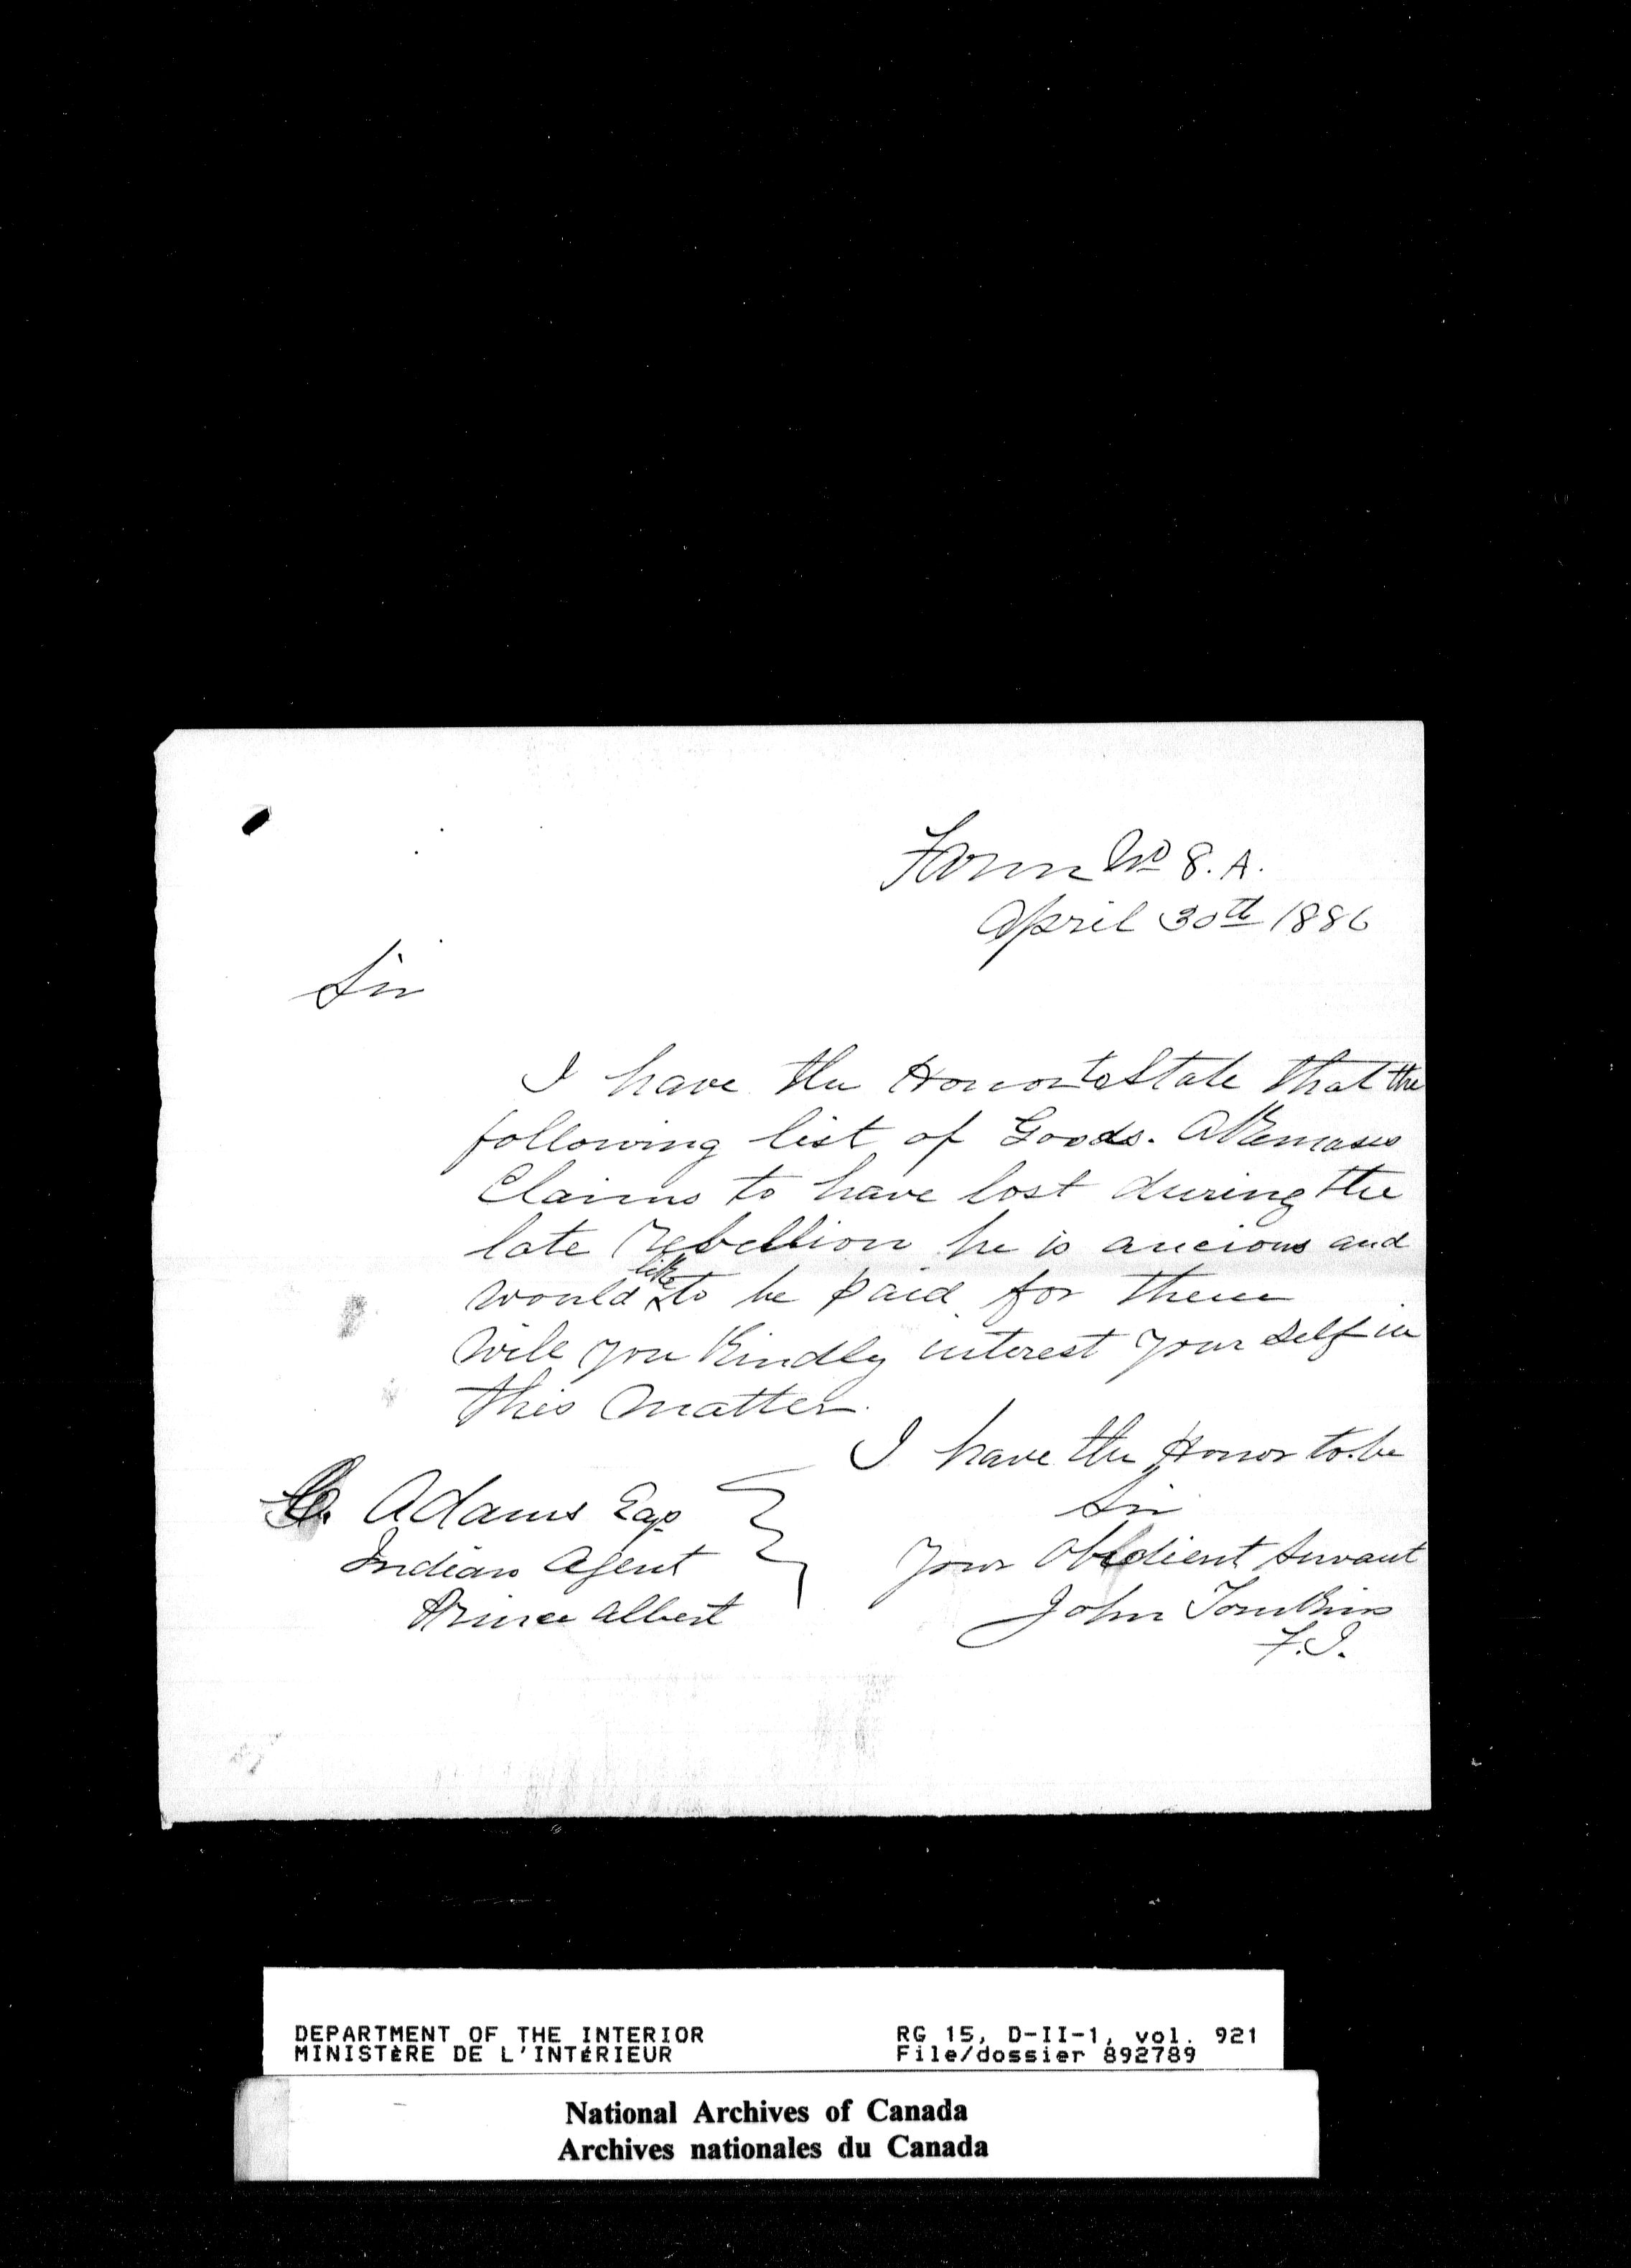 Farm No 8. A.
April 30th 1886
Sir
I have the Honor to State that the
following list of Goods. Akemases
Claims to have lost during the
late rebellion he is ancious and
would like to be paid for them
Will you Kindly interest your self in
this matter.
I have the Honor to be
Sir
Your Obedient Servant
John Tomkins
F.I.
Adams Esq
Indian Agent
Prince Albert
DEPARTMENT OF THE INTERIOR RG 15, D-II-1, vol. 921
MINISTÈRE DE L'INTÉRIEUR File/dossier 892789
National Archives of Canada
Archives nationales du Canada